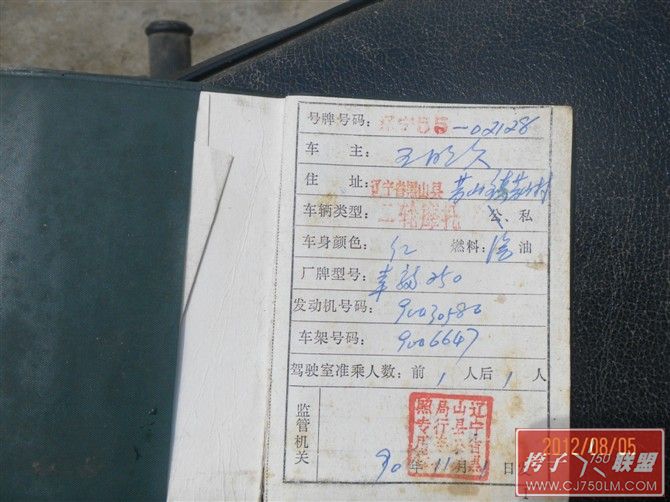 号牌号码: 辽宁05-02128
车 主: 王明久
住 址: 辽宁省黑山县 芳山镇芳山村
车辆类型: 二轮摩托 公、私
车身颜色: 红 燃料: 汽油
厂牌型号: 幸福250
发动机号码: 90030580
车架号码: 9006647
驾驶室准乘人数: 前1人后1人
监管机关
辽宁省黑山县
90年11月1日
2012/08/05
挎子 750 联盟
WWW.CJ750LM.COM